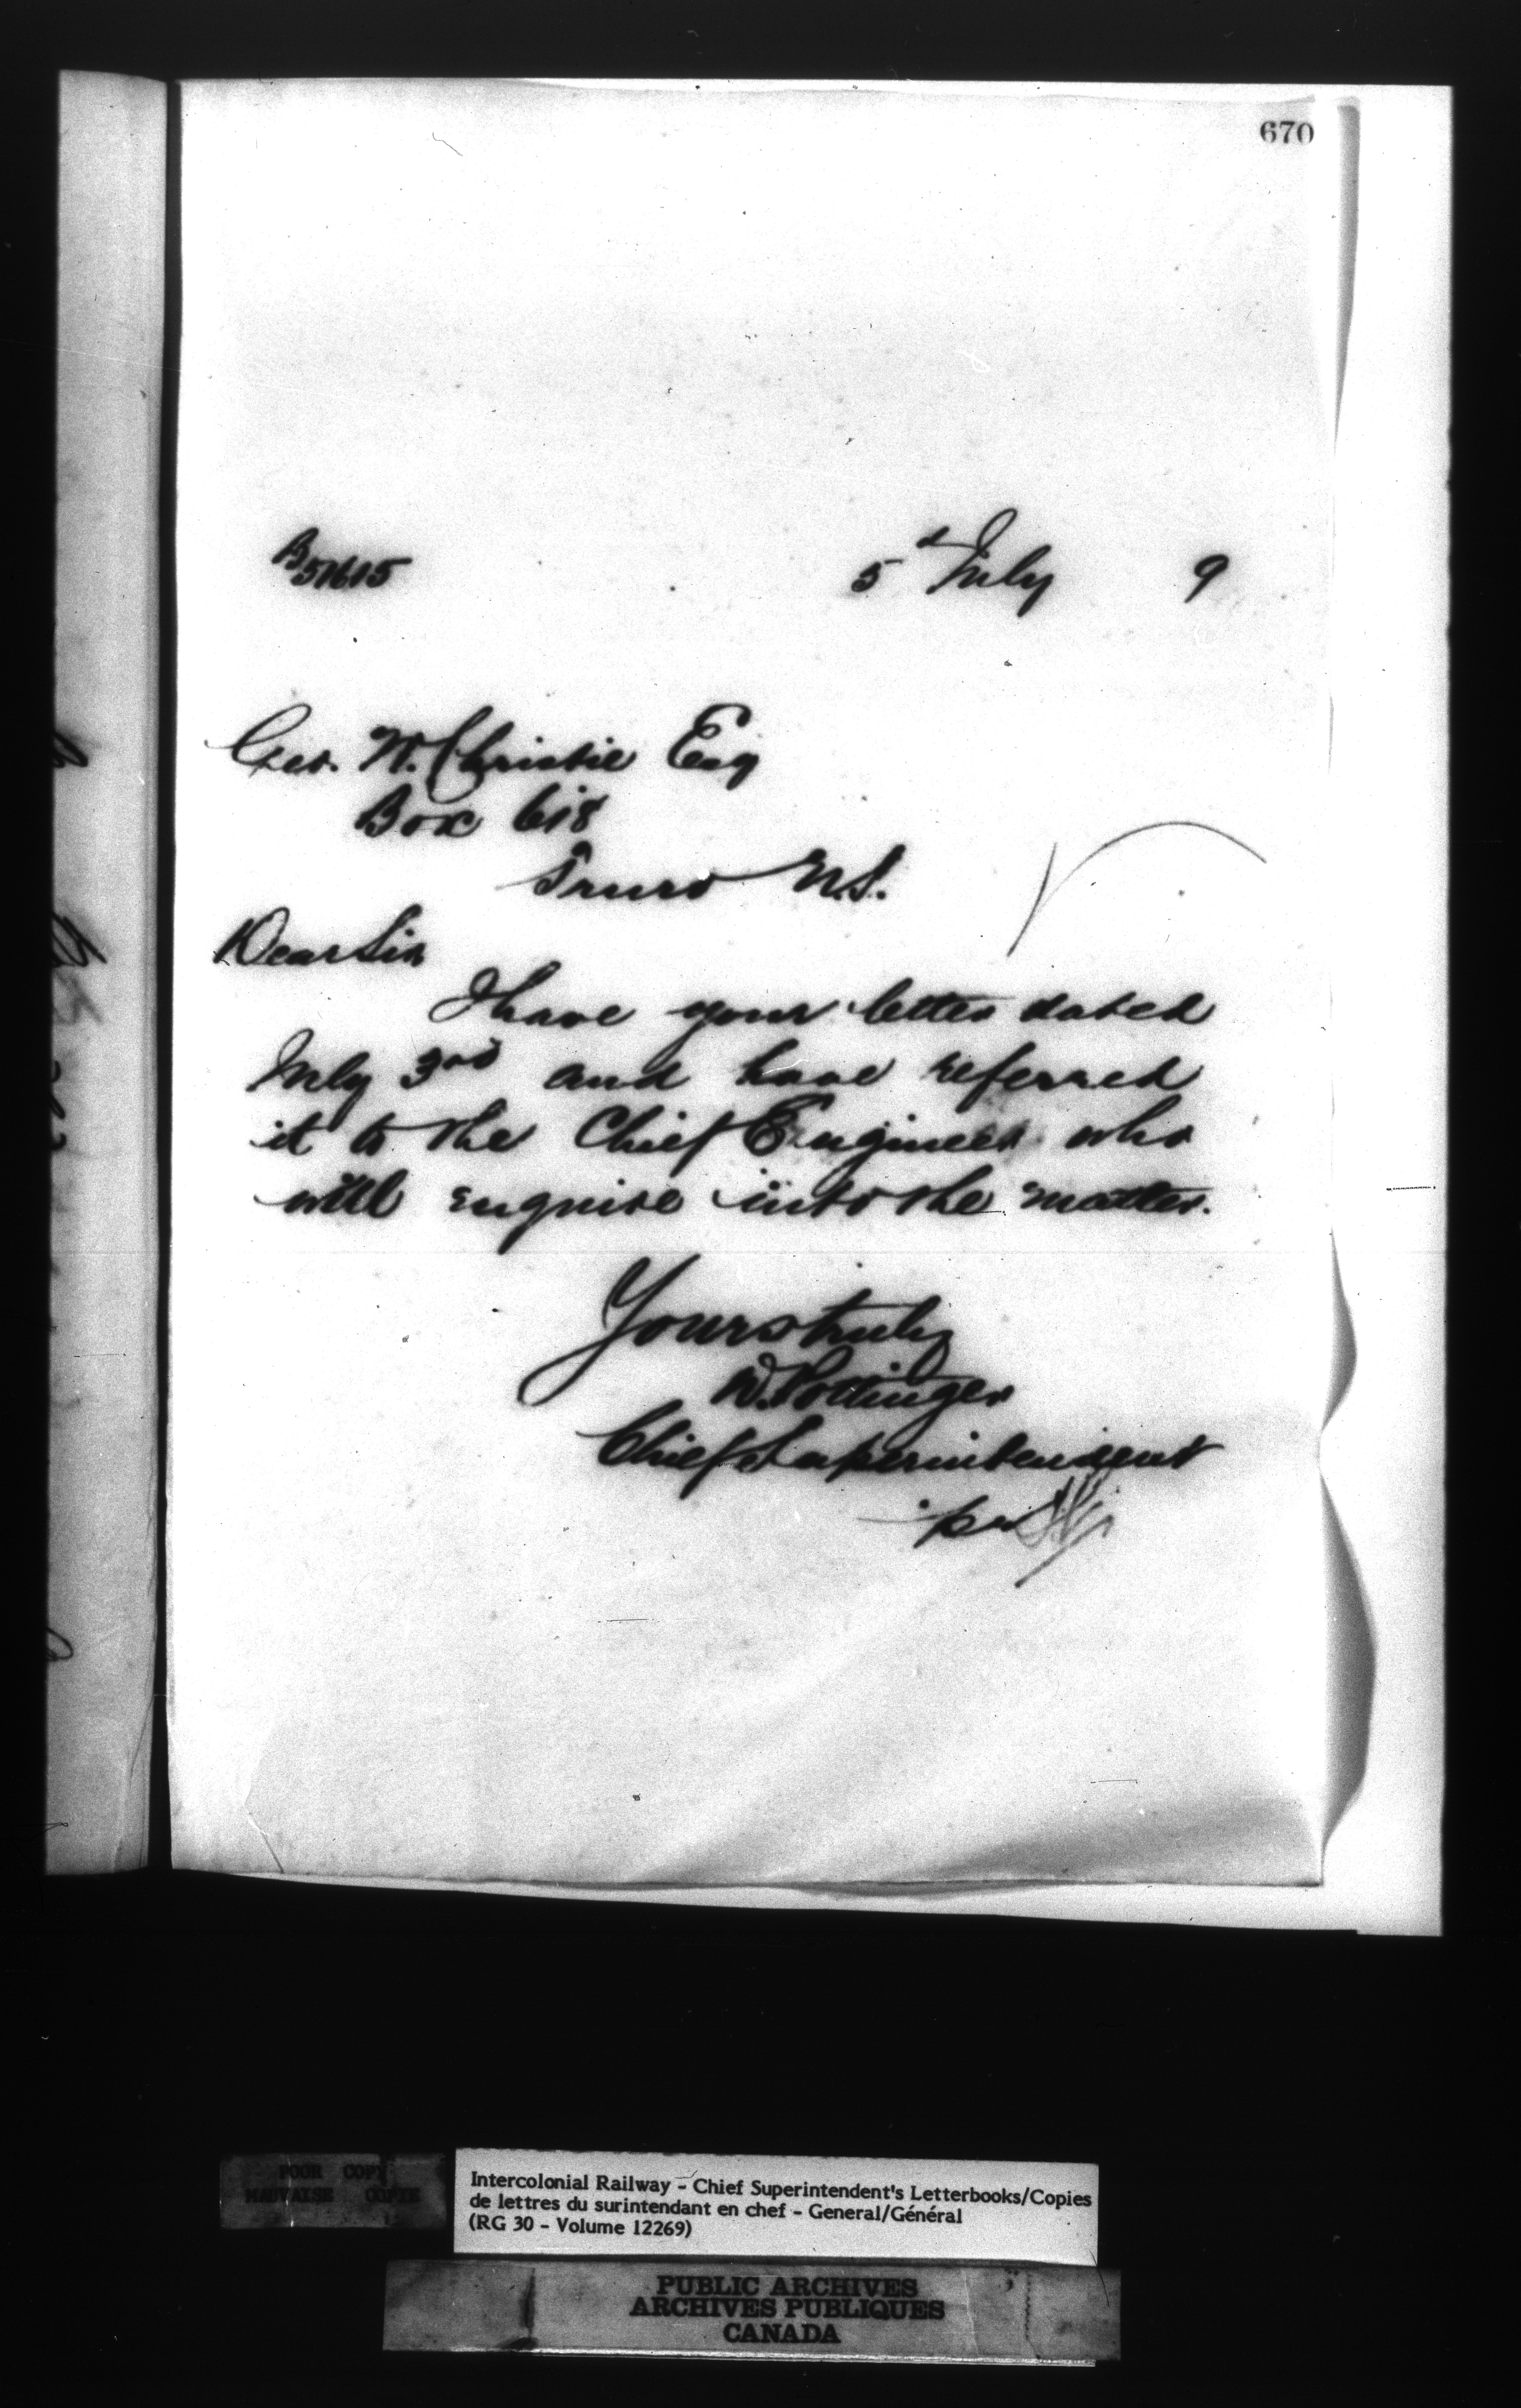 670
B51615
5th July 9
Geo. W. Christie Esq
Box 618
Truro N.S.
Dear Sir
I have your letter dated
July 3rd and have referred
it to the Chief Engineer who
will enquire into the matter.
Yours truly
D. Pottinger
Chief Superintendent
per
POOR COPY
MAUVAISE COPIE
Intercolonial Railway - Chief Superintendent's Letterbooks/Copies
de lettres du surintendant en chef - General/Général
(RG 30 - Volume 12269)
PUBLIC ARCHIVES
ARCHIVES PUBLIQUES
CANADA